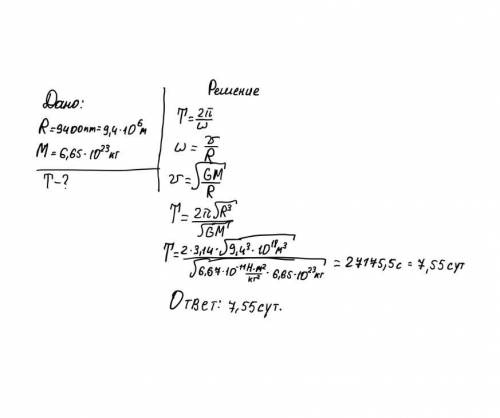 Дано:
R=9400км=9,4·10⁶м
M=6,65·10²³кг
T-?
Решение
T=2π/ω
ω=v/R
v=√(GM/R)
T=2π√R³/√GM
T=2·3,14·√(9,4³·10¹⁸м³)/√(6,67·10⁻¹¹Н·м²/кг²·6,65·10²³кг)=27175,5с=7,55сут
Ответ: 7,55сут.